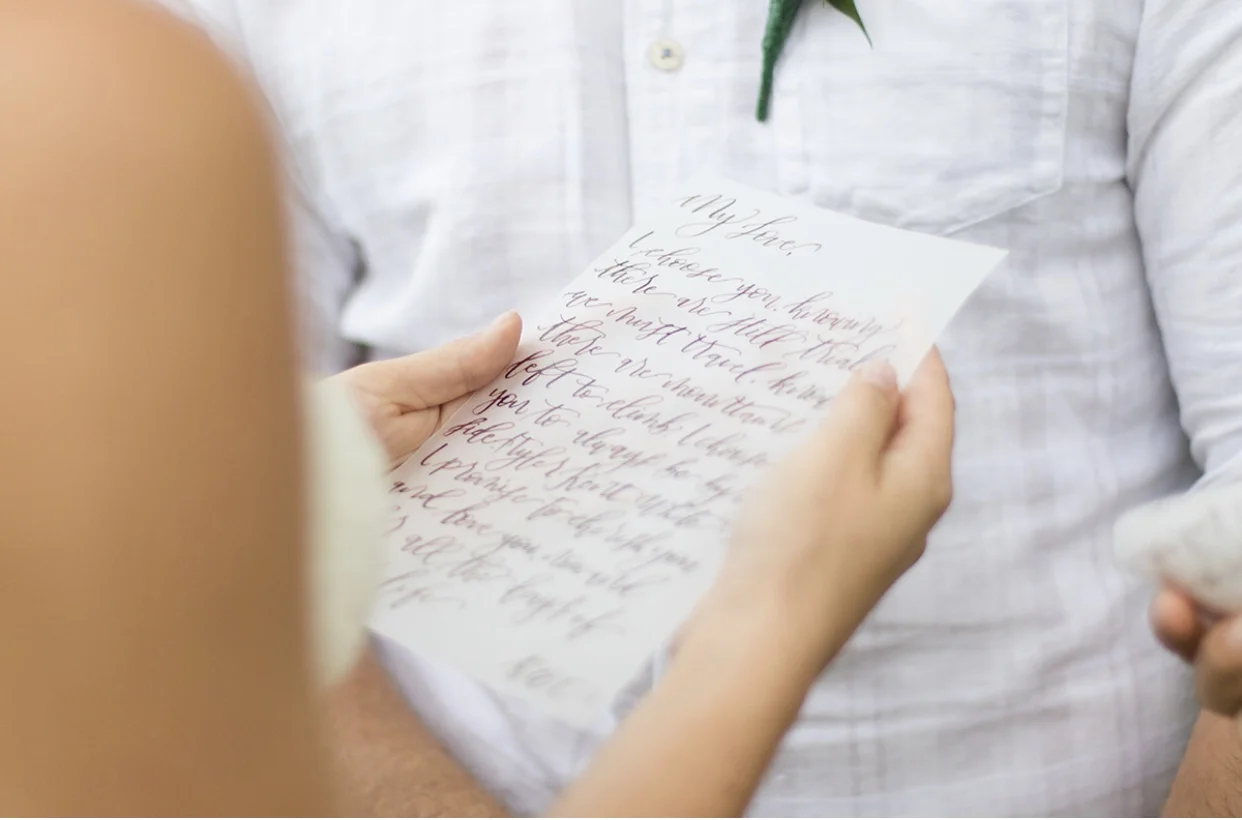 My Love,
I choose you, knowing
there are still trials
we must travel, know
there are mountains
left to climb. I choose
you to always be by
side
I promise to cherish you
and love you
all the days of
life